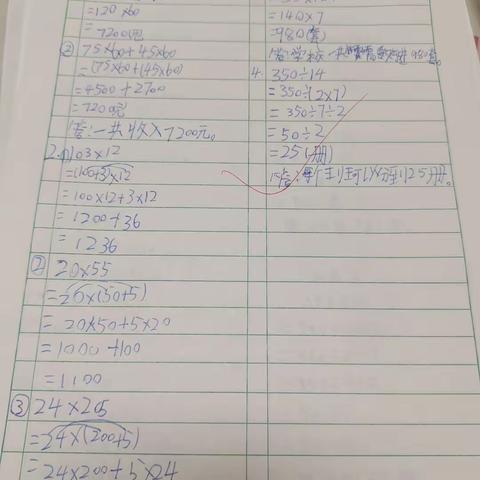 =120×60
=7200元
② 75×60+45×60
=(75×60)+(45×60)
=4500+2700
=7200元
答:一共收入7200元。
2.(1)103×12
=(100+3)×12
=100×12+3×12
=1200+36
=1236
② 20×55
=20×(50+5)
=20×50+5×20
=1000+100
=1100
③ 24×205
=24×(200+5)
=24×200+5×24
=140×7
=980(套)
答:学校一共需要 980套。
4. 350÷14
=350÷(2×7)
=350÷7÷2
=50÷2
=25(册)
答:每个班可以分到25册。